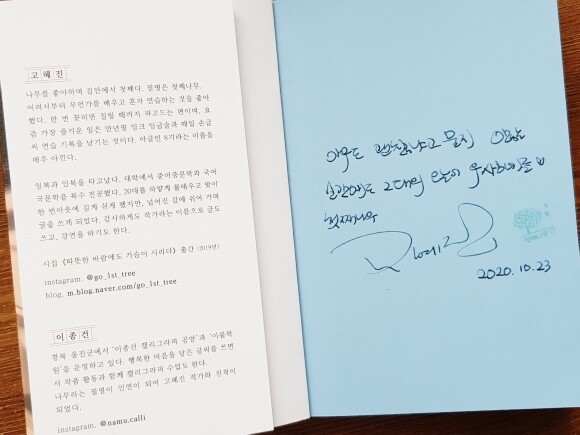 고혜진
나무를 좋아하며 집안에서 첫째다. 필명은 첫째나무.
어려서부터 무언가를 배우고 혼자 연습하는 것을 좋아
했다. 한 번 꽂히면 질릴 때까지 파고드는 편이며, 요
즘 가장 즐거운 일은 만년필 잉크 입금술과 매일 손글
씨 연습 기록을 남기는 것이다. 아글인 8기라는 이름을
매우 아낀다.
일복과 인복을 타고났다. 대학에서 중어중문학과 국어
국문학을 복수 전공했다. 20대를 하얗게 불태우고 맞이
한 번아웃에 길게 쉬려 했지만, 넘어진 김에 쉬어 가며
글을 쓰게 되었다. 감사하게도 작가라는 이름으로 글도
쓰고, 강연을 하기도 한다.
시집 《따뜻한 바람에도 가슴이 시리다》 출간 (2019년)
instagram. @go_1st_tree
blog. m.blog.naver.com/go_1st_tree
이종건
경북 울진군에서 '이종건 캘리그라피 공방'과 '이룸학
원'을 운영하고 있다. 행복한 마음을 담은 글씨를 쓰면
서 작품 활동과 함께 캘리그라피 수업도 한다.
나무라는 필명이 인연이 되어 고혜진 작가와 친척이
되었다.
instagram. @namu.calli
아무도 괜찮냐고 묻지 않는
순간에도 그대의 오늘이 무사하기를
첫째나무
2020.10.23